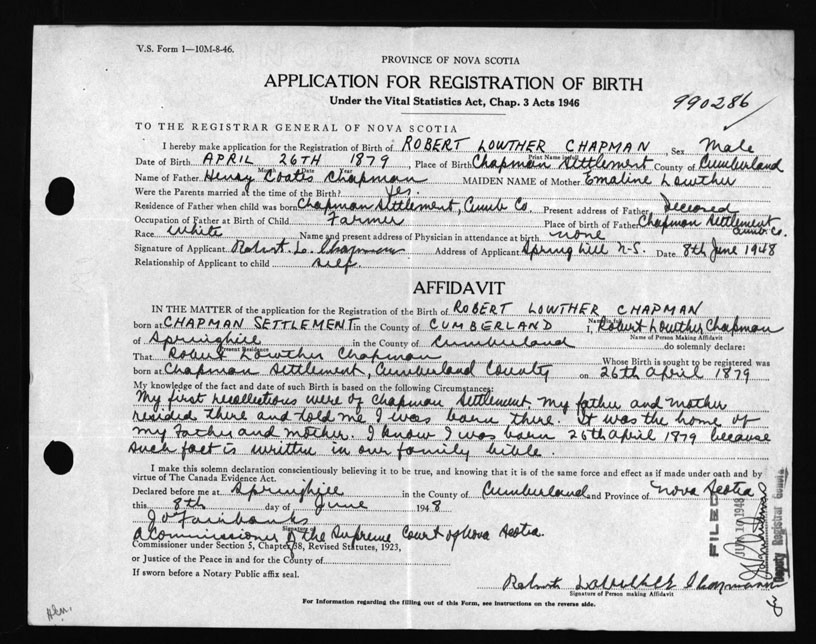 V.S. Form 1—10M-8-46.
PROVINCE OF NOVA SCOTIA
APPLICATION FOR REGISTRATION OF BIRTH
Under the Vital Statistics Act, Chap. 3 Acts 1946
990286
TO THE REGISTRAR GENERAL OF NOVA SCOTIA
I hereby make application for the Registration of Birth of ROBERT LOWTHER CHAPMAN, Sex Male
Print Name in full
Date of Birth APRIL 26TH 1879, Place of Birth Chapman Settlement County of Cumberland
Month Date Year
Name of Father Henry Coates Chapman MAIDEN NAME of Mother Emaline Lowther
Were the Parents married at the time of the Birth? Yes.
Residence of Father when child was born Chapman Settlement, Cumb Co. Present address of Father Deceased
Occupation of Father at Birth of Child Farmer Place of birth of Father Chapman Settlement Cumb. Co.
Race White Name and present address of Physician in attendance at birth none
Signature of Applicant Robert L. Chapman Address of Applicant Spring hill N.S. Date 8th June 1948
Relationship of Applicant to child self
AFFIDAVIT
IN THE MATTER of the application for the Registration of the Birth of ROBERT LOWTHER CHAPMAN
born at CHAPMAN SETTLEMENT in the County of CUMBERLAND I, Robert Lowther Chapman
Name of Person Making Affidavit
of Springhill in the County of Cumberland do solemnly declare:
Present Residence
That Robert Lowther Chapman Whose Birth is sought to be registered was
born at Chapman Settlement, Cumberland County on 26th April 1879
My knowledge of the fact and date of such Birth is based on the following Circumstances:
My first recollections were of Chapman Settlement my father and mother
resided there and told me I was born there. It was the home of
my Father and mother. I know I was born 26th April 1879 because
such fact is written in our family bible.
I make this solemn declaration conscientiously believing it to be true, and knowing that it is of the same force and effect as if made under oath and by
virtue of The Canada Evidence Act.
Declared before me at Springhill in the County of Cumberland and Province of Nova Scotia
this 8th day of June 1948
Fairbanks
Signature
A Commissioner of the Supreme Court of Nova Scotia.
Commissioner under Section 5, Chapter 38, Revised Statutes, 1923,
or Justice of the Peace in and for the County of
If sworn before a Notary Public affix seal.
Robert Chapman
Signature of Person making Affidavit
For Information regarding the filling out of this Form, see Instructions on the reverse side.
FILED
1948
Deputy Registrar General